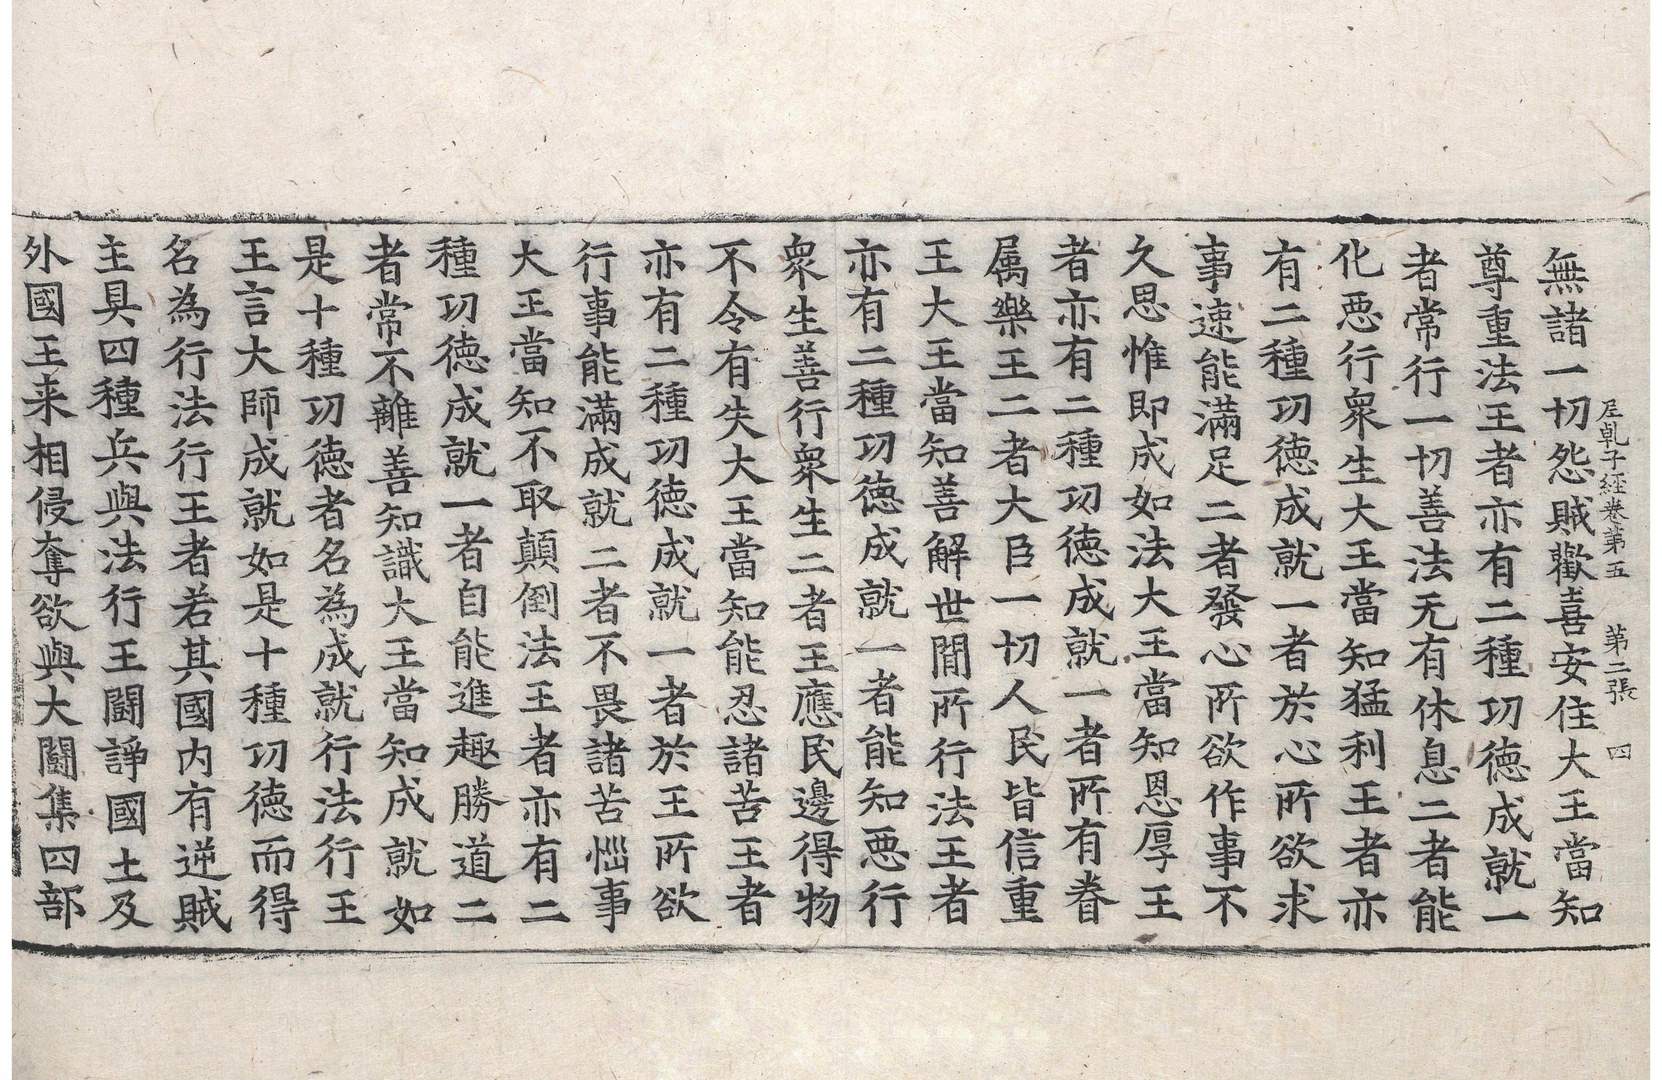 尼乹子經卷第五　第二張　四
無諸一切怨賊歡喜安住大王當知
尊重法王者亦有二種㓛德成就一
者常行一切善法无有休息二者能
化惡行衆生大王當知猛利王者亦
有二種㓛德成就一者於心所欲求
事速能滿足二者發心所欲作事不
久思惟即成如法大王當知恩厚王
者亦有二種㓛德成就一者所有眷
屬樂王二者大臣一切人民皆信重
王大王當知善解世間所行法王者
亦有二種㓛德成就一者能知惡行
衆生善行衆生二者王應民邊得物
不令有失大王當知能忍諸苦王者
亦有二種㓛德成就一者於王所欲
行事能滿成就二者不畏諸苦惱事
大王當知不取顛倒法王者亦有二
種㓛德成就一者自能進趣勝道二
者常不離善知識大王當知成就如
是十種㓛德者名為成就行法行王
王言大師成就如是十種㓛德而得
名為行法行王者若其國内有逆賊
主具四種兵與法行王鬪諍國土及
外國王来相侵奪欲與大鬪集四部